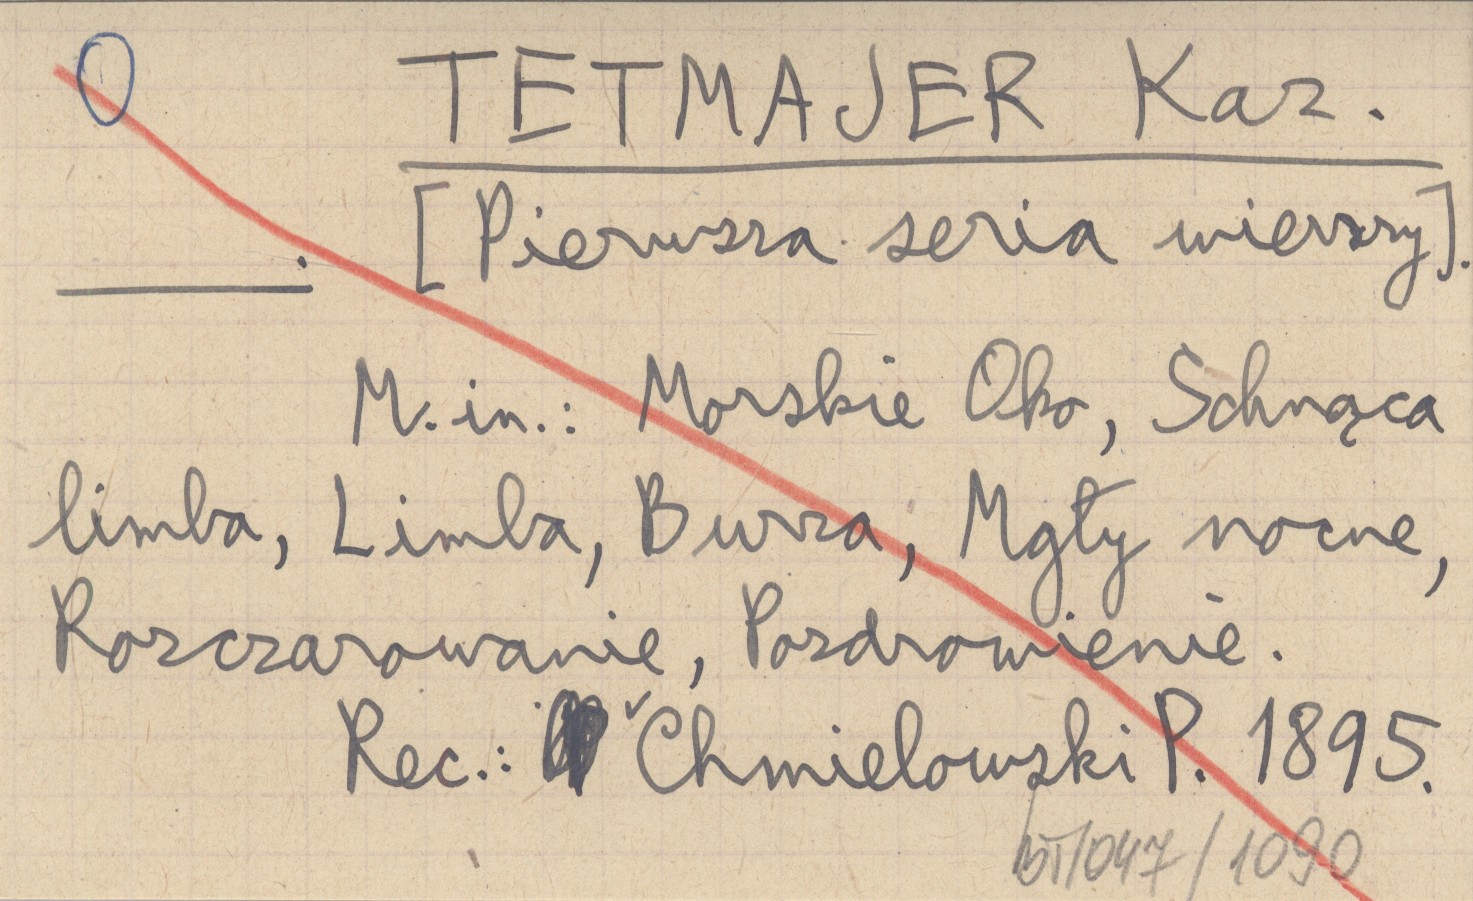 TETMAJER Kaz.
[Pierwsza seria wierszy].
M.in.: Morskie Oko, Schnąca
limba, Limba, Burza, Mgły nocne,
Rozczarowanie, Pozdrowienie.
Rec.: Chmielowski P. 1895.
/047/1090